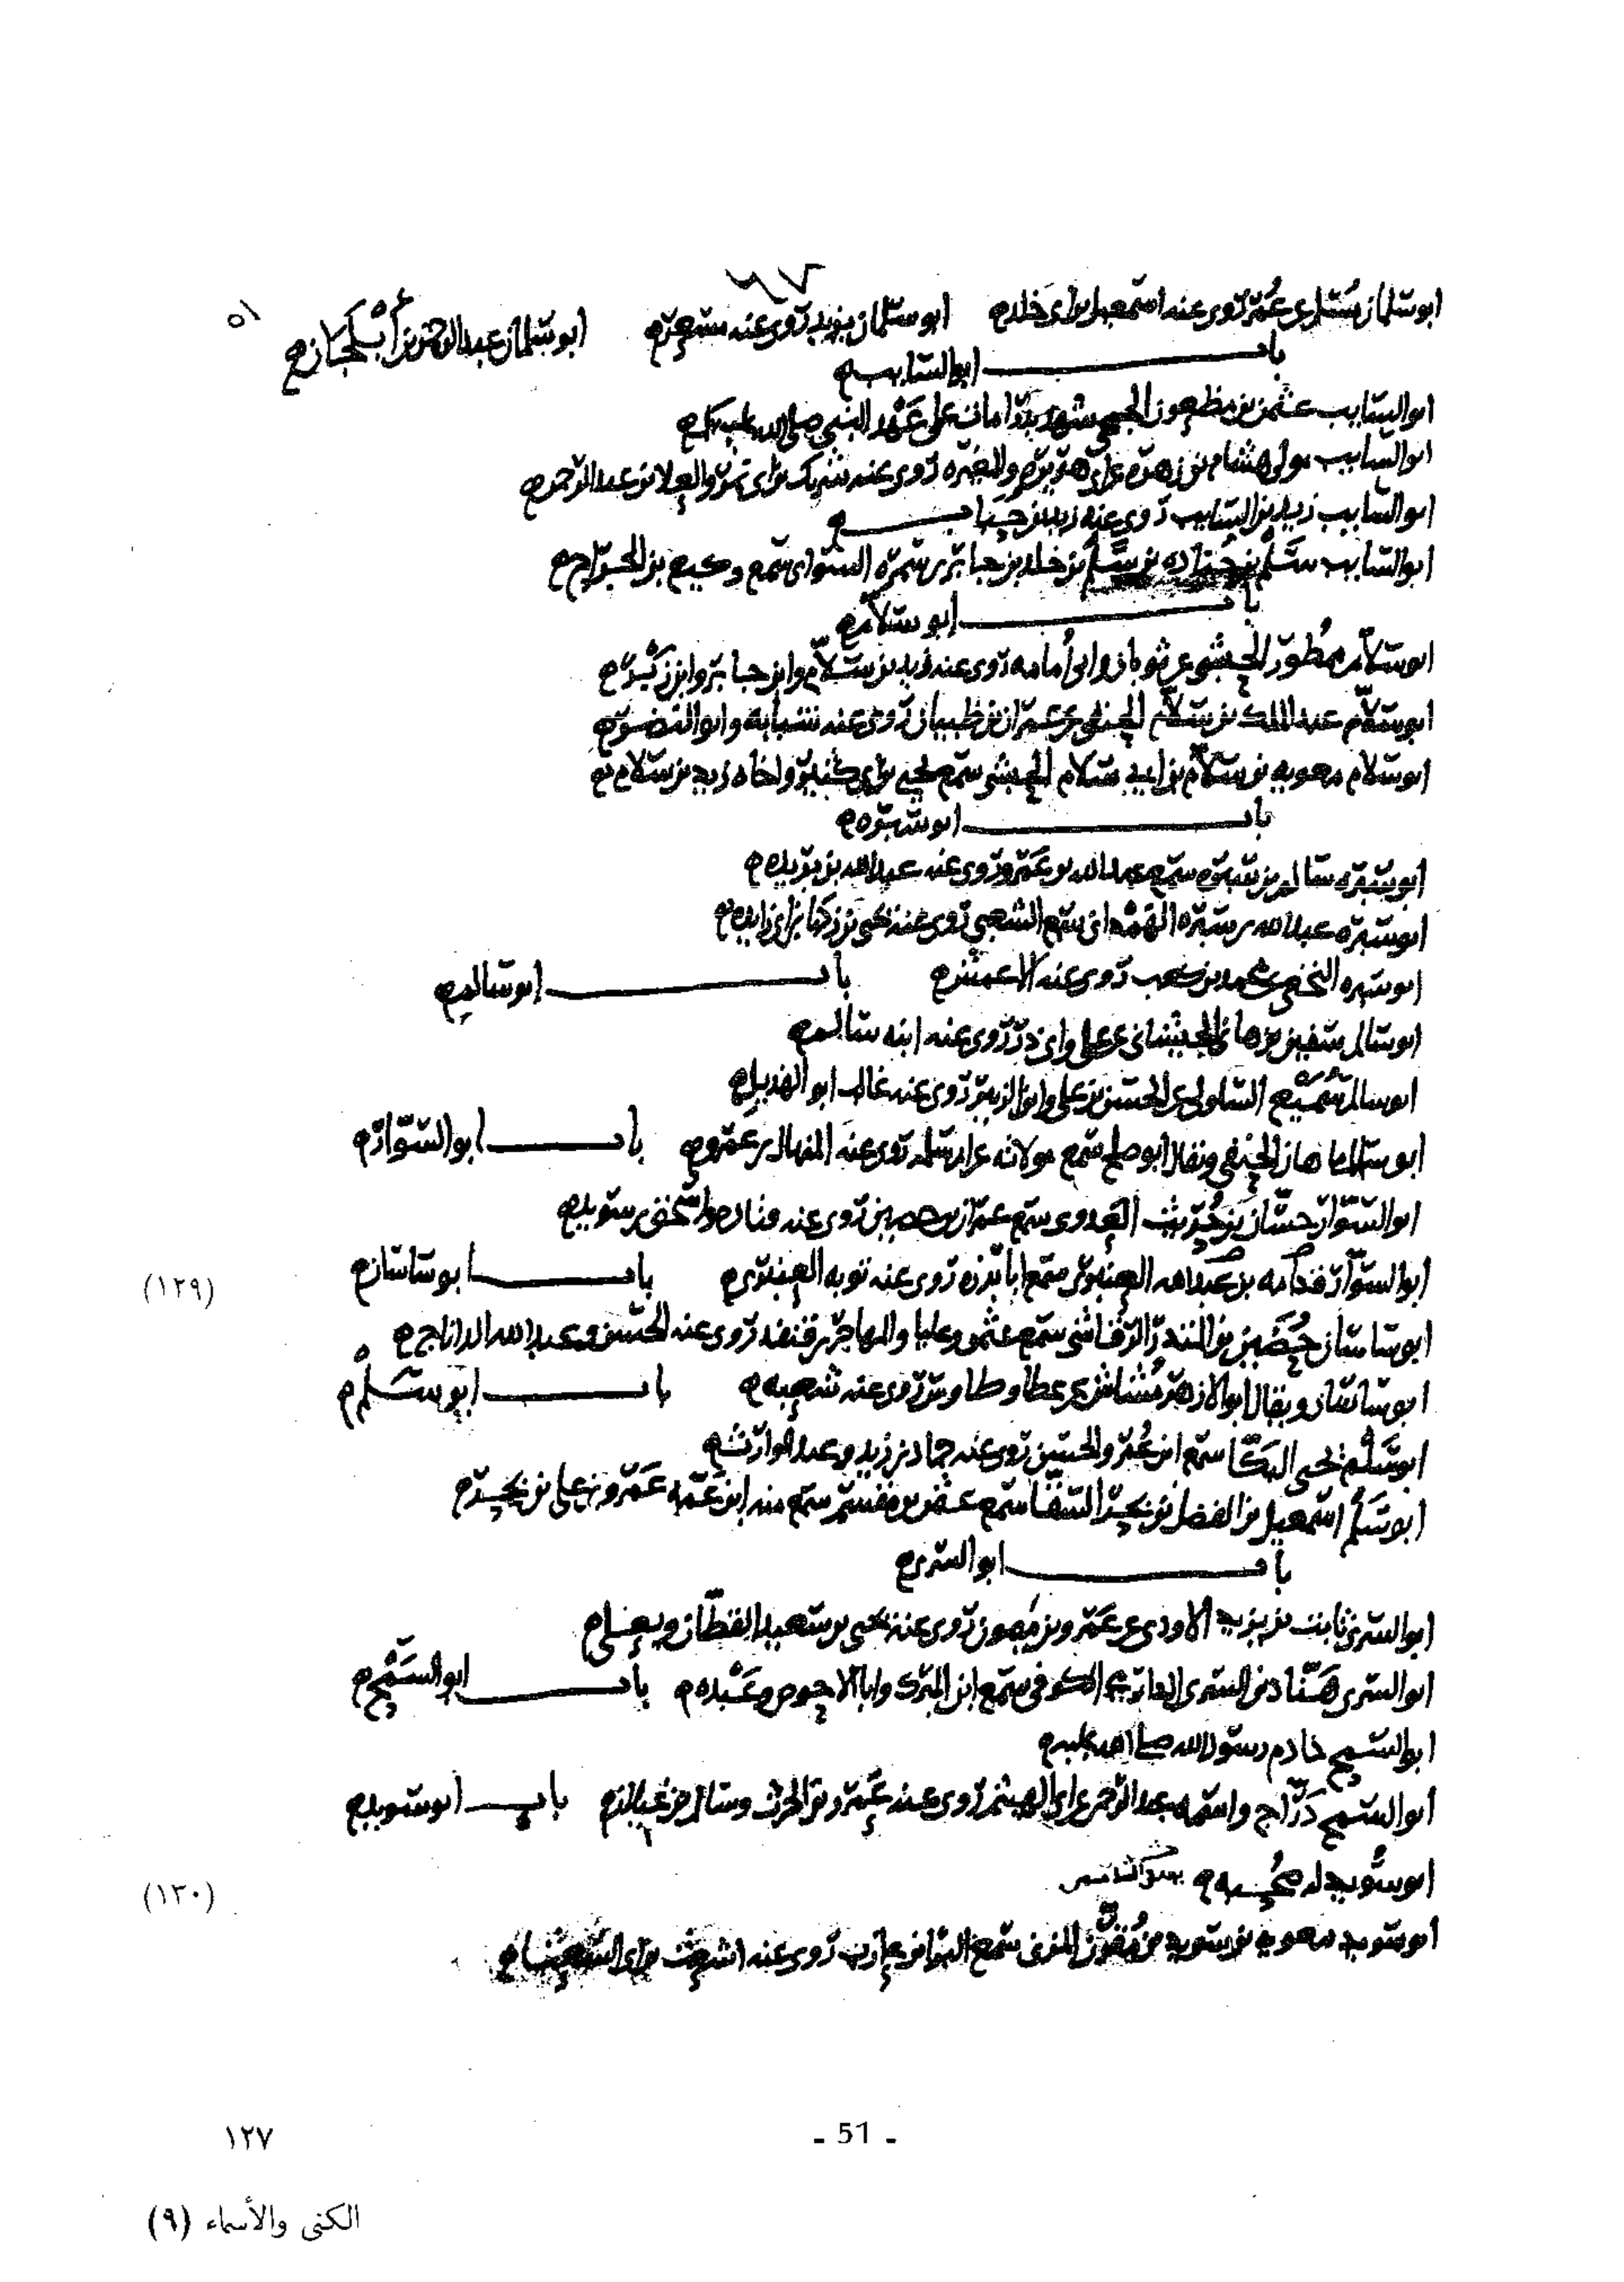 ٥١
ابو سلمان عن عمر روى عنه اسمعيل بن ابى خلد ابو سلمان يزيد روى عنه مسعر ابو سلمان عبد الرحمن بن
باب ابو السايب
ابو السايب عثمن بن مظعون الجمحى شهد بدرا مات على عهد النبى صلى الله عليه
ابو السايب مولى هشام بن زهره عن ابى هريره والمغيره روى عنه شريك بن ابى نمر والعلا بن عبد الرحمن
ابو السايب زيد بن السايب روى عنه زيد بن حباب
ابو السايب سلم بن جناده بن سلم بن خلد بن جابر بن سمره السوائى سمع وكيع بن الجراح
باب ابو سلام
ابو سلام ممطور الحبشى عن ثوبان وابى امامه روى عنه زيد بن سلام وابن جابر وابن زبر
ابو سلام عبد الملك بن سلام الحنفى عن عمران بن ظبيان روى عنه شبابه وابو النضر
ابو سلام معويه بن سلام بن ابى سلام الحبشى سمع يحيى بن ابى كثير واخاه زيد بن سلام
باب ابو سبره
ابو سبره سالم بن سبره سمع عبد الله بن عمرو روى عنه عبد الله بن بريده
ابو سبره عبد الله بن سبره الهمدانى سمع الشعبى روى عنه يحيى بن زكريا بن ابى زايده
ابو سبره النخعى عن محمد بن كعب روى عنه الاعمش باب ابو سالم
ابو سالم سفين بن هانى الجيشانى عن على وابى ذر روى عنه ابنه سالم
ابو سالم سميع السلولى عن الحسن بن على وابن الزبير روى عنه غالب ابو الهذيل
ابو سالم ماهان الحنفى ويقال ابو صلح سمع مولاته عن ام سلمه روى عنه المنهال بن عمرو باب ابو السوار
ابو السوار حسان بن حريث العدوى سمع عمران بن حصين روى عنه قتاده واسحق بن سويد
ابو السوار قدامه بن عبد الله العنبرى سمع ابا برزه روى عنه توبه العنبرى باب ابو ساسان
(١٢٩)
ابو ساسان حضين بن المنذر الرقاشى سمع عثمن وعليا والمهاجر بن قنفذ روى عنه الحسن وعبد الله الداناج
ابو ساسان ويقال ابو الازهر مشاش عن عطا وطاوس روى عنه شعبه باب ابو سلم
ابو سلم يحيى البكا سمع ابن عمر والحسين روى عنه حماد بن زيد وعبد الوارث
ابو سلم اسمعيل بن الفضل بن بحير السقا سمع منه ابن عمه عمرو بن على بن بحير
باب ابو السرى
ابو السرى ثابت بن يزيد الاودى عن عمرو بن ميمون روى عنه يحيى بن سعيد القطان ويعلى
ابو السرى هناد بن السرى الدارمى الكوفى سمع ابن المبرك وابا الاحوص وعبده باب ابو السمح
ابو السمح خادم رسول الله صلى الله عليه
ابو السمح دراج واسمه عبد الرحمن عن ابى الهيثم روى عنه عمرو بن الحرث وسالم بن غيلان باب ابو سويد
ابو سويد له صحبه
(١٣٠)
ابو سويد معويه بن سويد بن مقرن المزنى سمع البرا بن عازب روى عنه اشعث بن ابى الشعثا
١٢٧
- 51 -
الكنى والأسماء (٩)